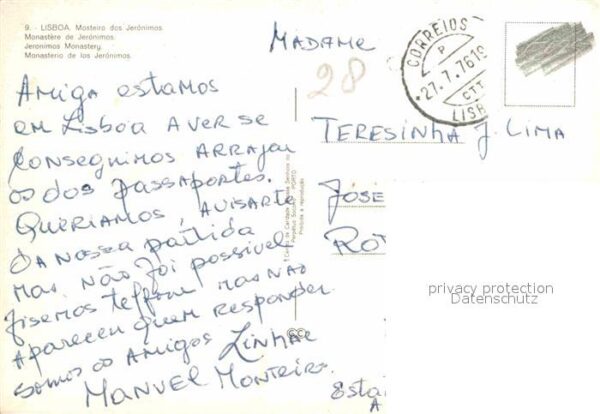 9. - LISBOA. Mosteiro dos Jerónimos.
Monastère de Jerónimos.
Jeronimos Monastery.
Monasterio de los Jerónimos.
AMIGA ESTAMOS
EM LISBOA A VER SE
CONSEGUIMOS ARRAJAR
OS DOS PASSAPORTES.
QUERIAMOS, AVISARTE
DA NOSSA PARTIDA
MAS NÃO FOI POSSIVEL
FISEMOS MAS NÃO
APARECEU QUEM RESPONDER
SOMOS OS AMIGOS
MANUEL MONTEIRO.
MADAME
28
CORREIOS
P
27.7.7619
CTT
LISB
TERESINHA J. LIMA
JOSE
ROT
privacy protection
Datenschutz
ESTA
A